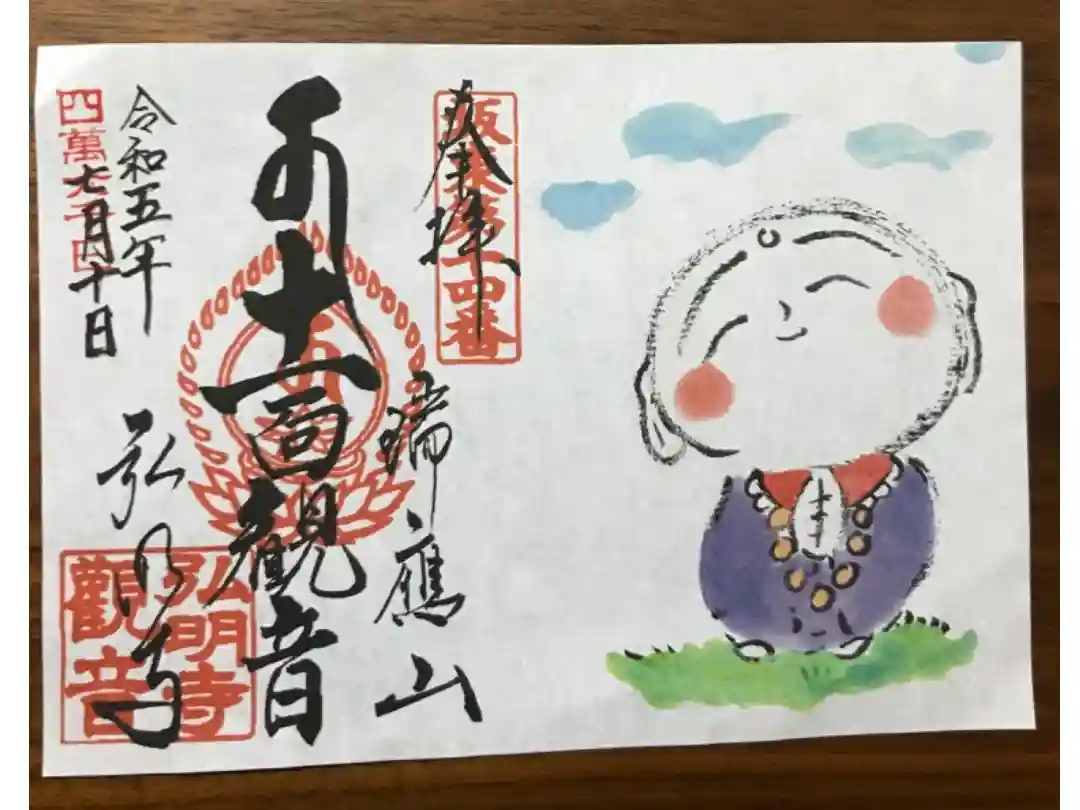 奉拝
坂東第十四番
瑞應山
十一面観音
令和五年
七月十日
四萬六千日
弘明寺
弘明寺
觀音